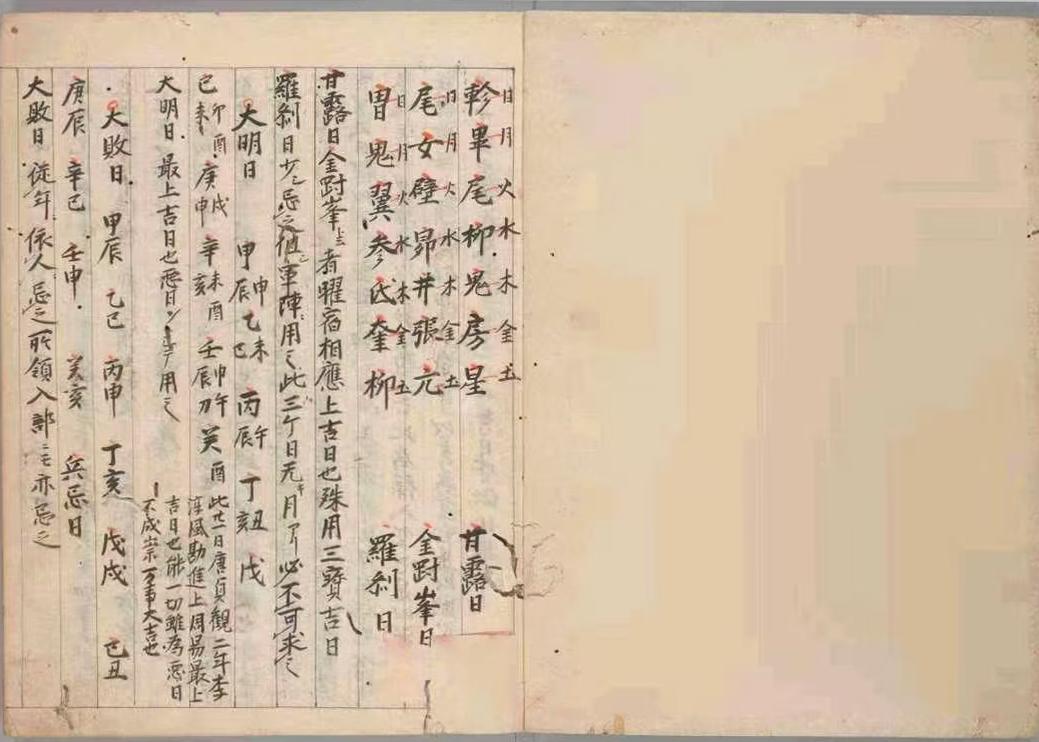 日 月 火 水 木 金 土
軫 畢 尾 柳 鬼 房 星 甘露日
日 月 火 水 木 金 土
尾 女 壁 昴 井 張 亢 金㓻峯日
日 月 火 水 木 金 土
胃 鬼 翼 参 氐 奎 柳 羅刹日
甘露日金㓻峯者曜宿相應上吉日也殊用三寳吉日
羅刹日少〻忌之但軍陣用之此三ケ日无月必不可求之
大明日 甲辰申 乙巳未 丙辰午 丁亥丑 戊
己卯未酉 庚申戌 辛亥未酉 壬辰申午 癸酉
此廿一日唐貞観二年李
淳風勘進上周易最上
吉日也能一切雖為悪日
不成祟万事大吉也
大明日 最上吉日也悪日 用之
大敗日 甲辰 乙巳 丙申 丁亥 戊戌 己丑
庚辰 辛巳 壬申 癸亥 兵忌日
大敗日 従年依人忌之所領入部ニモ亦忌之